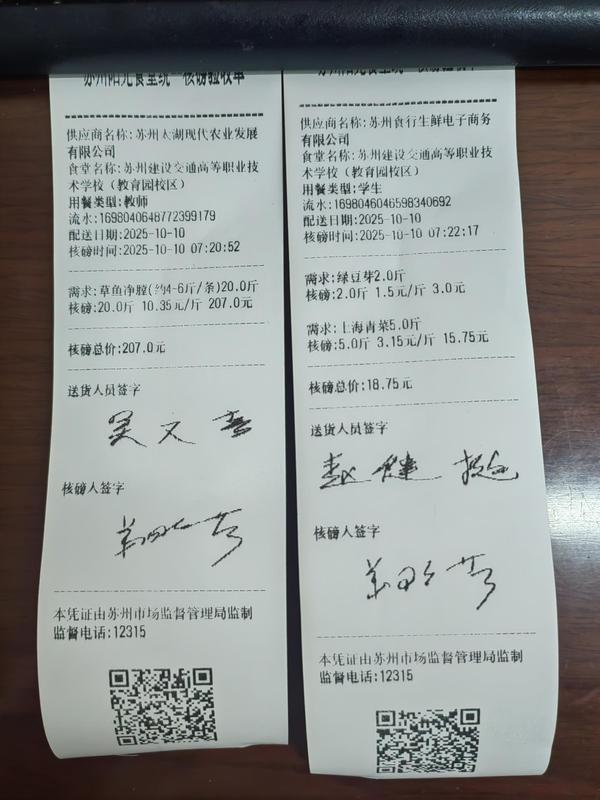 苏州阳光食堂统一核磅验收单
供应商名称:苏州太湖现代农业发展
有限公司
食堂名称:苏州建设交通高等职业技
术学校（教育园校区）
用餐类型:教师
流水:1698040648772399179
配送日期:2025-10-10
核磅时间:2025-10-10 07:20:52
需求:草鱼净膛(约4-6斤/条)20.0斤
核磅:20.0斤 10.35元/斤 207.0元
核磅总价:207.0元
送货人员签字
吴又喜
核磅人签字
本凭证由苏州市场监督管理局监制
监督电话:12315
供应商名称:苏州食行生鲜电子商务
有限公司
食堂名称:苏州建设交通高等职业技
术学校（教育园校区）
用餐类型:学生
流水:1698046046598340692
配送日期:2025-10-10
核磅时间:2025-10-10 07:22:17
需求:绿豆芽2.0斤
核磅:2.0斤 1.5元/斤 3.0元
需求:上海青菜5.0斤
核磅:5.0斤 3.15元/斤 15.75元
核磅总价:18.75元
送货人员签字
赵健
核磅人签字
本凭证由苏州市场监督管理局监制
监督电话:12315